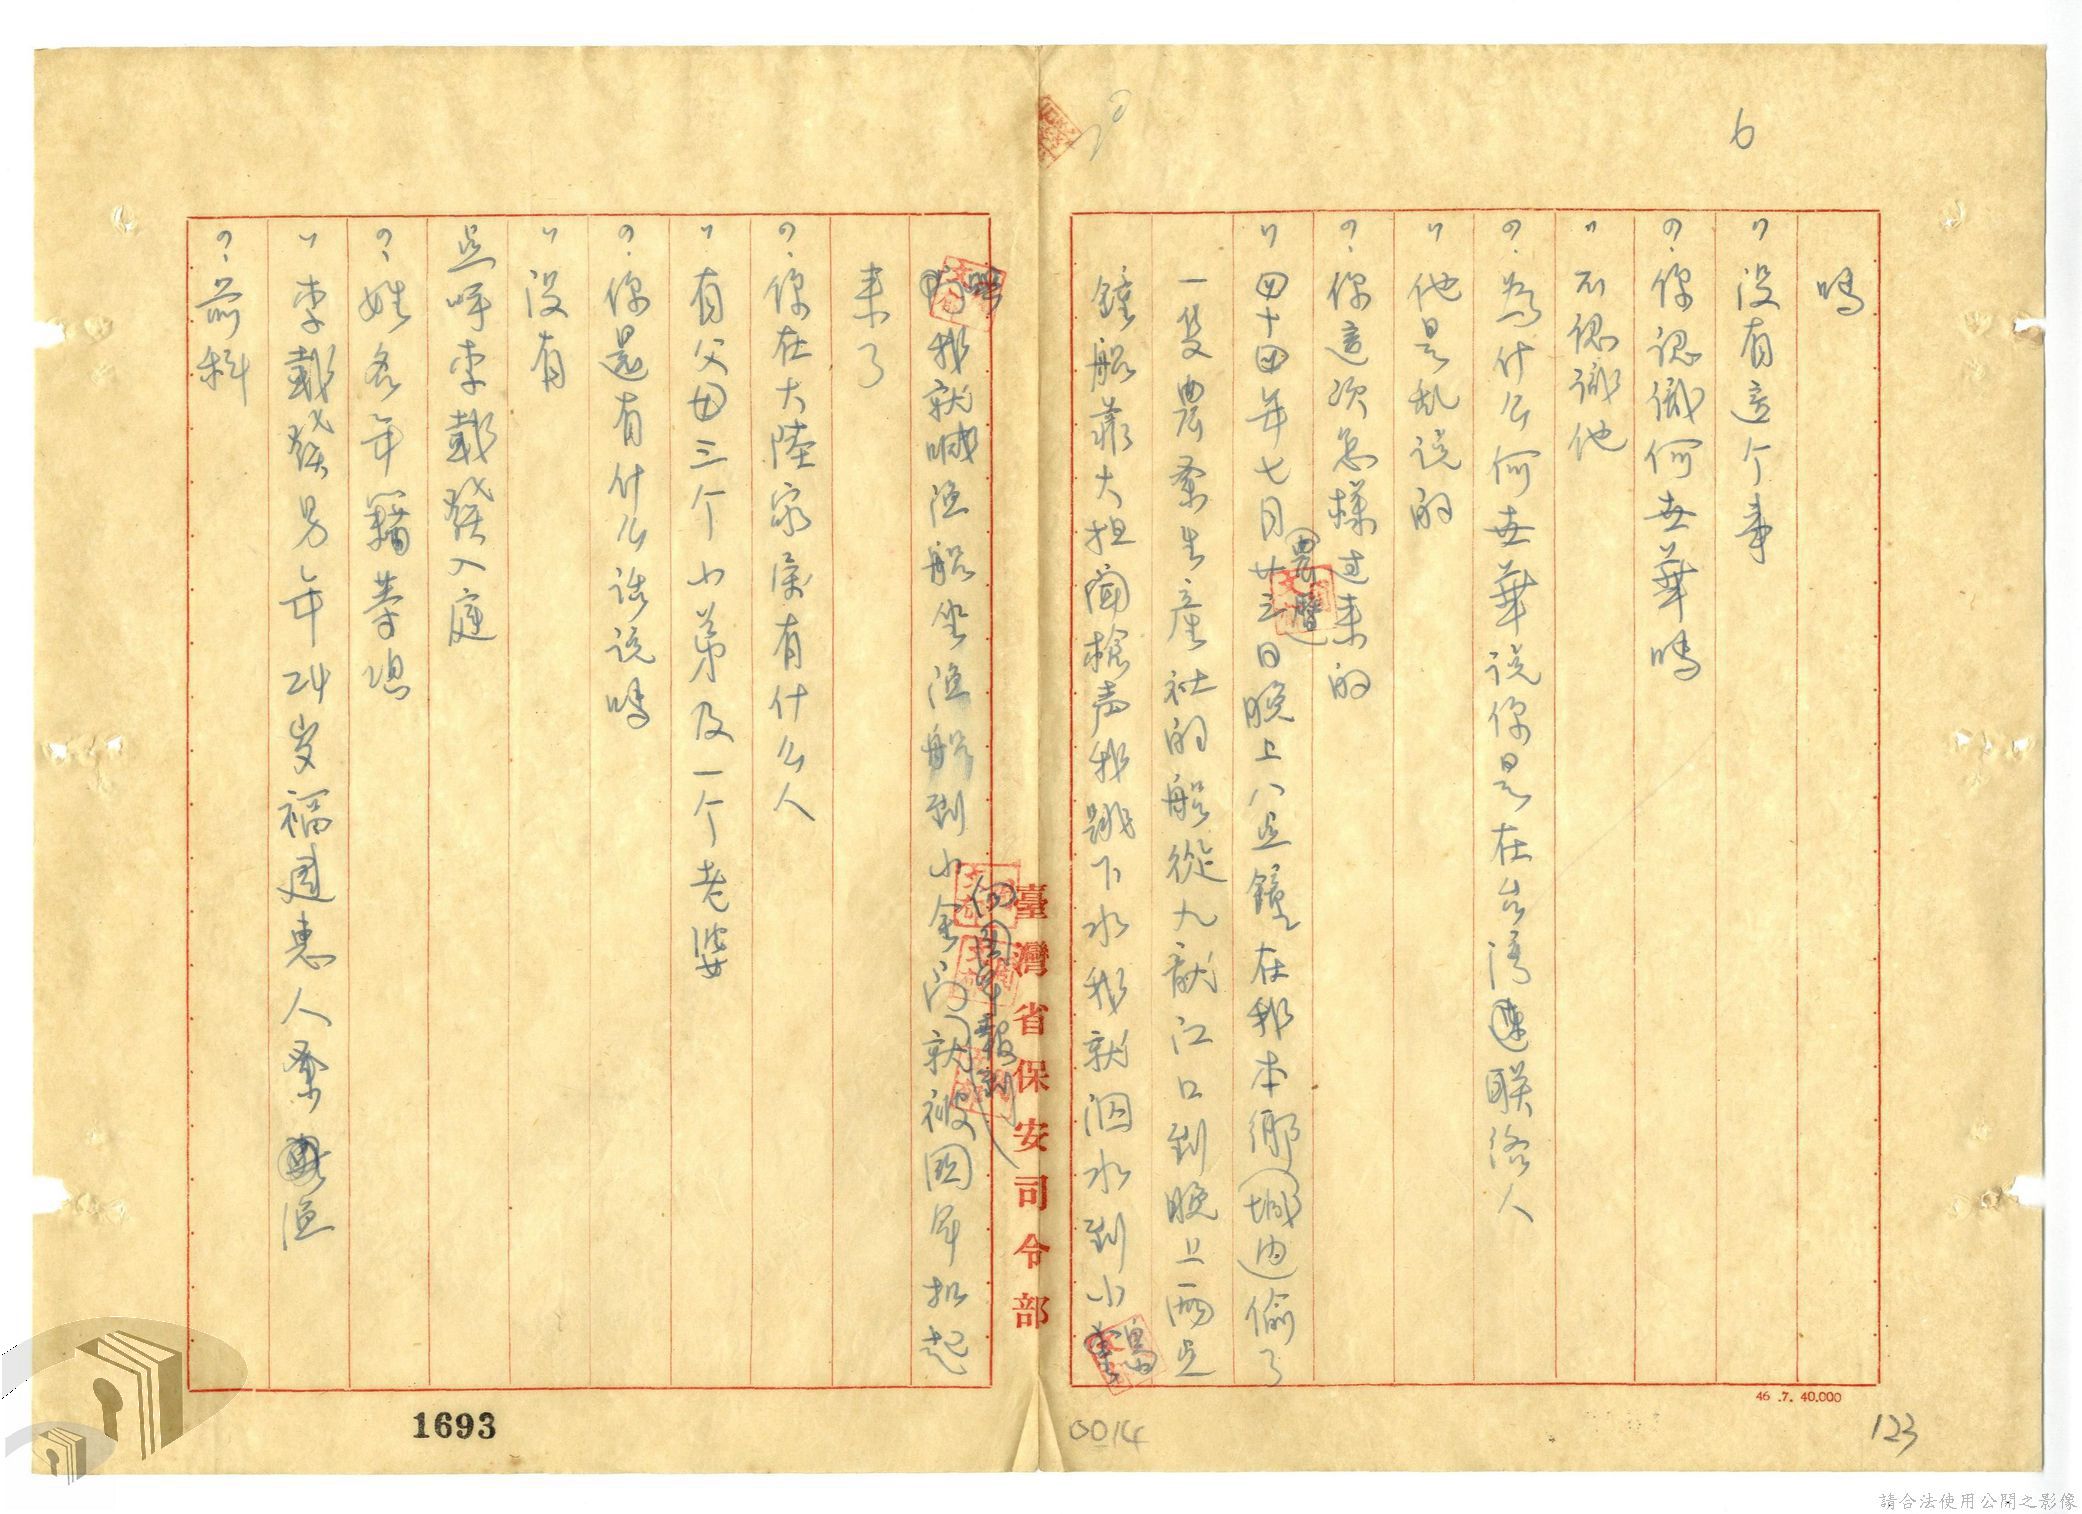 6
嗎
〃没有這个事
?你認識何世華嗎
〃不認識他
?為什么何世華說你是在台湾联络人
〃他是乱說的
?你這次怎樣过来的
〃四十四年七月廿三日晚上八点鐘在我本鄉城边偷了
農曆
一隻農業生產社的船從九龍江口到晚上兩点
鐘船靠大担聞槍声我跳下水我就泅水到小
島
我就喊渔船坐渔船到小金門就被国军扣起
向国军報到
来了
?你在大陸家庭有什么人
〃有父母三个小弟及一个老婆
?你還有什么話說嗎
〃没有
点呼李載發入庭
?姓名年籍等項
〃李載發男年24岁福建惠人業渔
?前科
臺灣省保安司令部
46 .7. 40.000
1693
0014
123
請合法使用公開之影像